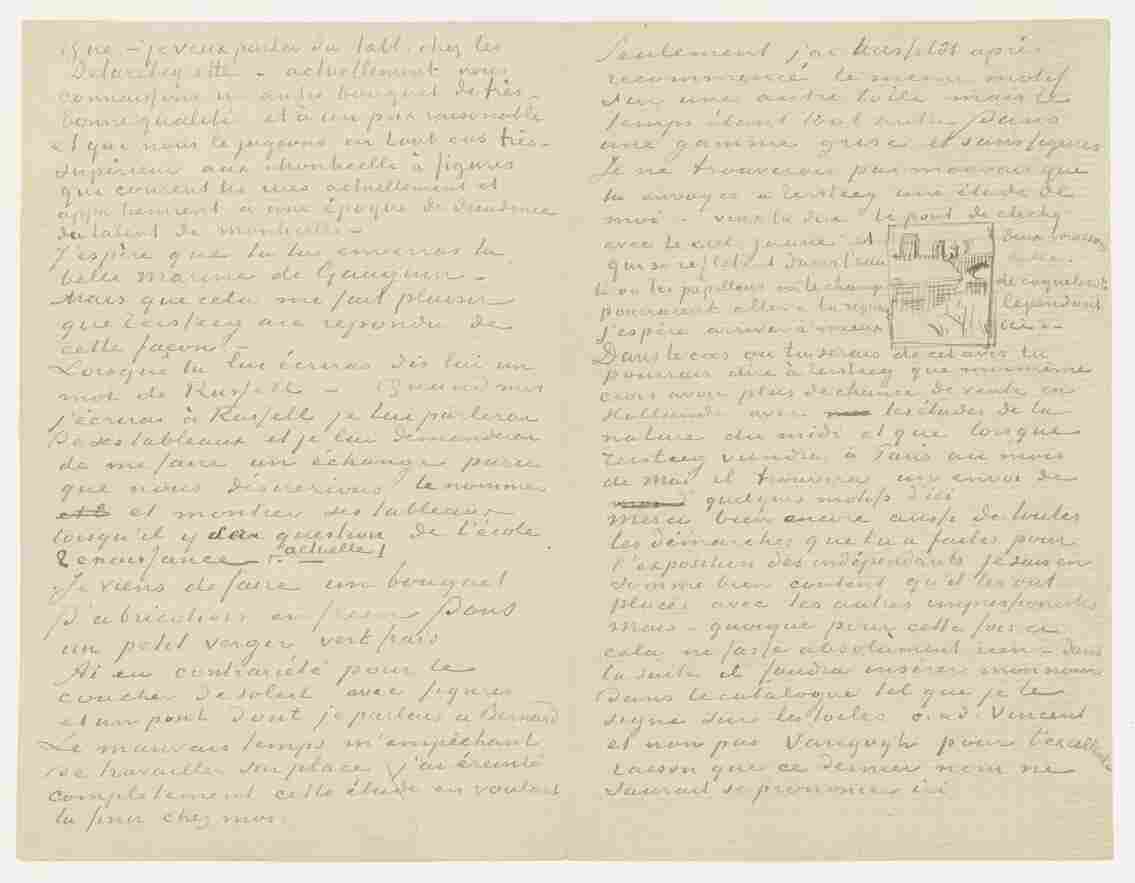 que – je veux parler du tabl. chez les
Delarebeyrette – actuellement nous
connaissons un autre bouquet de très-
bonne qualité et à un prix raisonable
et que nous le jugeons en tout cas très-
supérieur aux Monticelli à figures
qui courent les rues actuellement et
appartiennent a une époque de décadence
du talent de Monticelli –
J'espère que tu lui enverras la
belle marine de Gauguin –
Mais que cela me fait plaisir
que Tersteeg aie repondu de
cette façon. –
Lorsque tu lui écriras dis lui un
mot de Russell – Quand moi
j'écrirai à Russell je lui parlerai
de ses tableaux et je lui demanderai
de me faire un échange parce
que nous désirerions le nommer
et montrer ses tableaux
lorsqu'il y aura question de l'école
Renaissance actuelle!
Je viens de faire un bouquet
d'abricotiers en fleur dans
un petit verger vert frais
Ai eu contrariété pour le
coucher de soleil avec figures
et un pont dont je parlais à Bernard
Le mauvais temps m'empêchant
de travailler sur place j'ai éreinté
complètement cette étude en voulant
la finir chez moi.
Seulement j'ai aussitôt après
recommencé le meme motif
sur une autre toile mais le
temps étant tout autre dans
une gamme grise et sans figures
Je ne trouverais pas mauvais que
tu envoyes a Tersteeg une étude de
moi – veux tu dire le pont de clichy
avec le ciel jaune et deux maisons
qui se reflètent dans l'eau
là ou les papillons ou le champ de coquelicots
pourraient aller à la rigueur Cependant
j'espère arriver à mieux ici –
Dans le cas ou tu serais de cet avis tu
pourrais dire à Tersteeg que moi même
crois avoir plus de chance de vente en
Hollande avec les études de la
nature du midi et que lorsque
Tersteeg viendra à Paris au mois
de Mai il trouvera un envoi de
quelques motifs d'ici
Merci bien encore aussi de toutes
les démarches que tu a faites pour
l'exposition des indépendants je suis en
somme bien content qu'ils les ont
placés avec les autres impressionistes
Mais – quoique pour cette fois ci
cela ne fasse absolument rien – dans
la suite il faudra insérer mon nom
dans le catalogue tel que je le
signe sur les toiles c.a.d. Vincent
et non pas Vangogh pour l'excellente
raison que ce dernier nom ne
saurait se prononcer ici